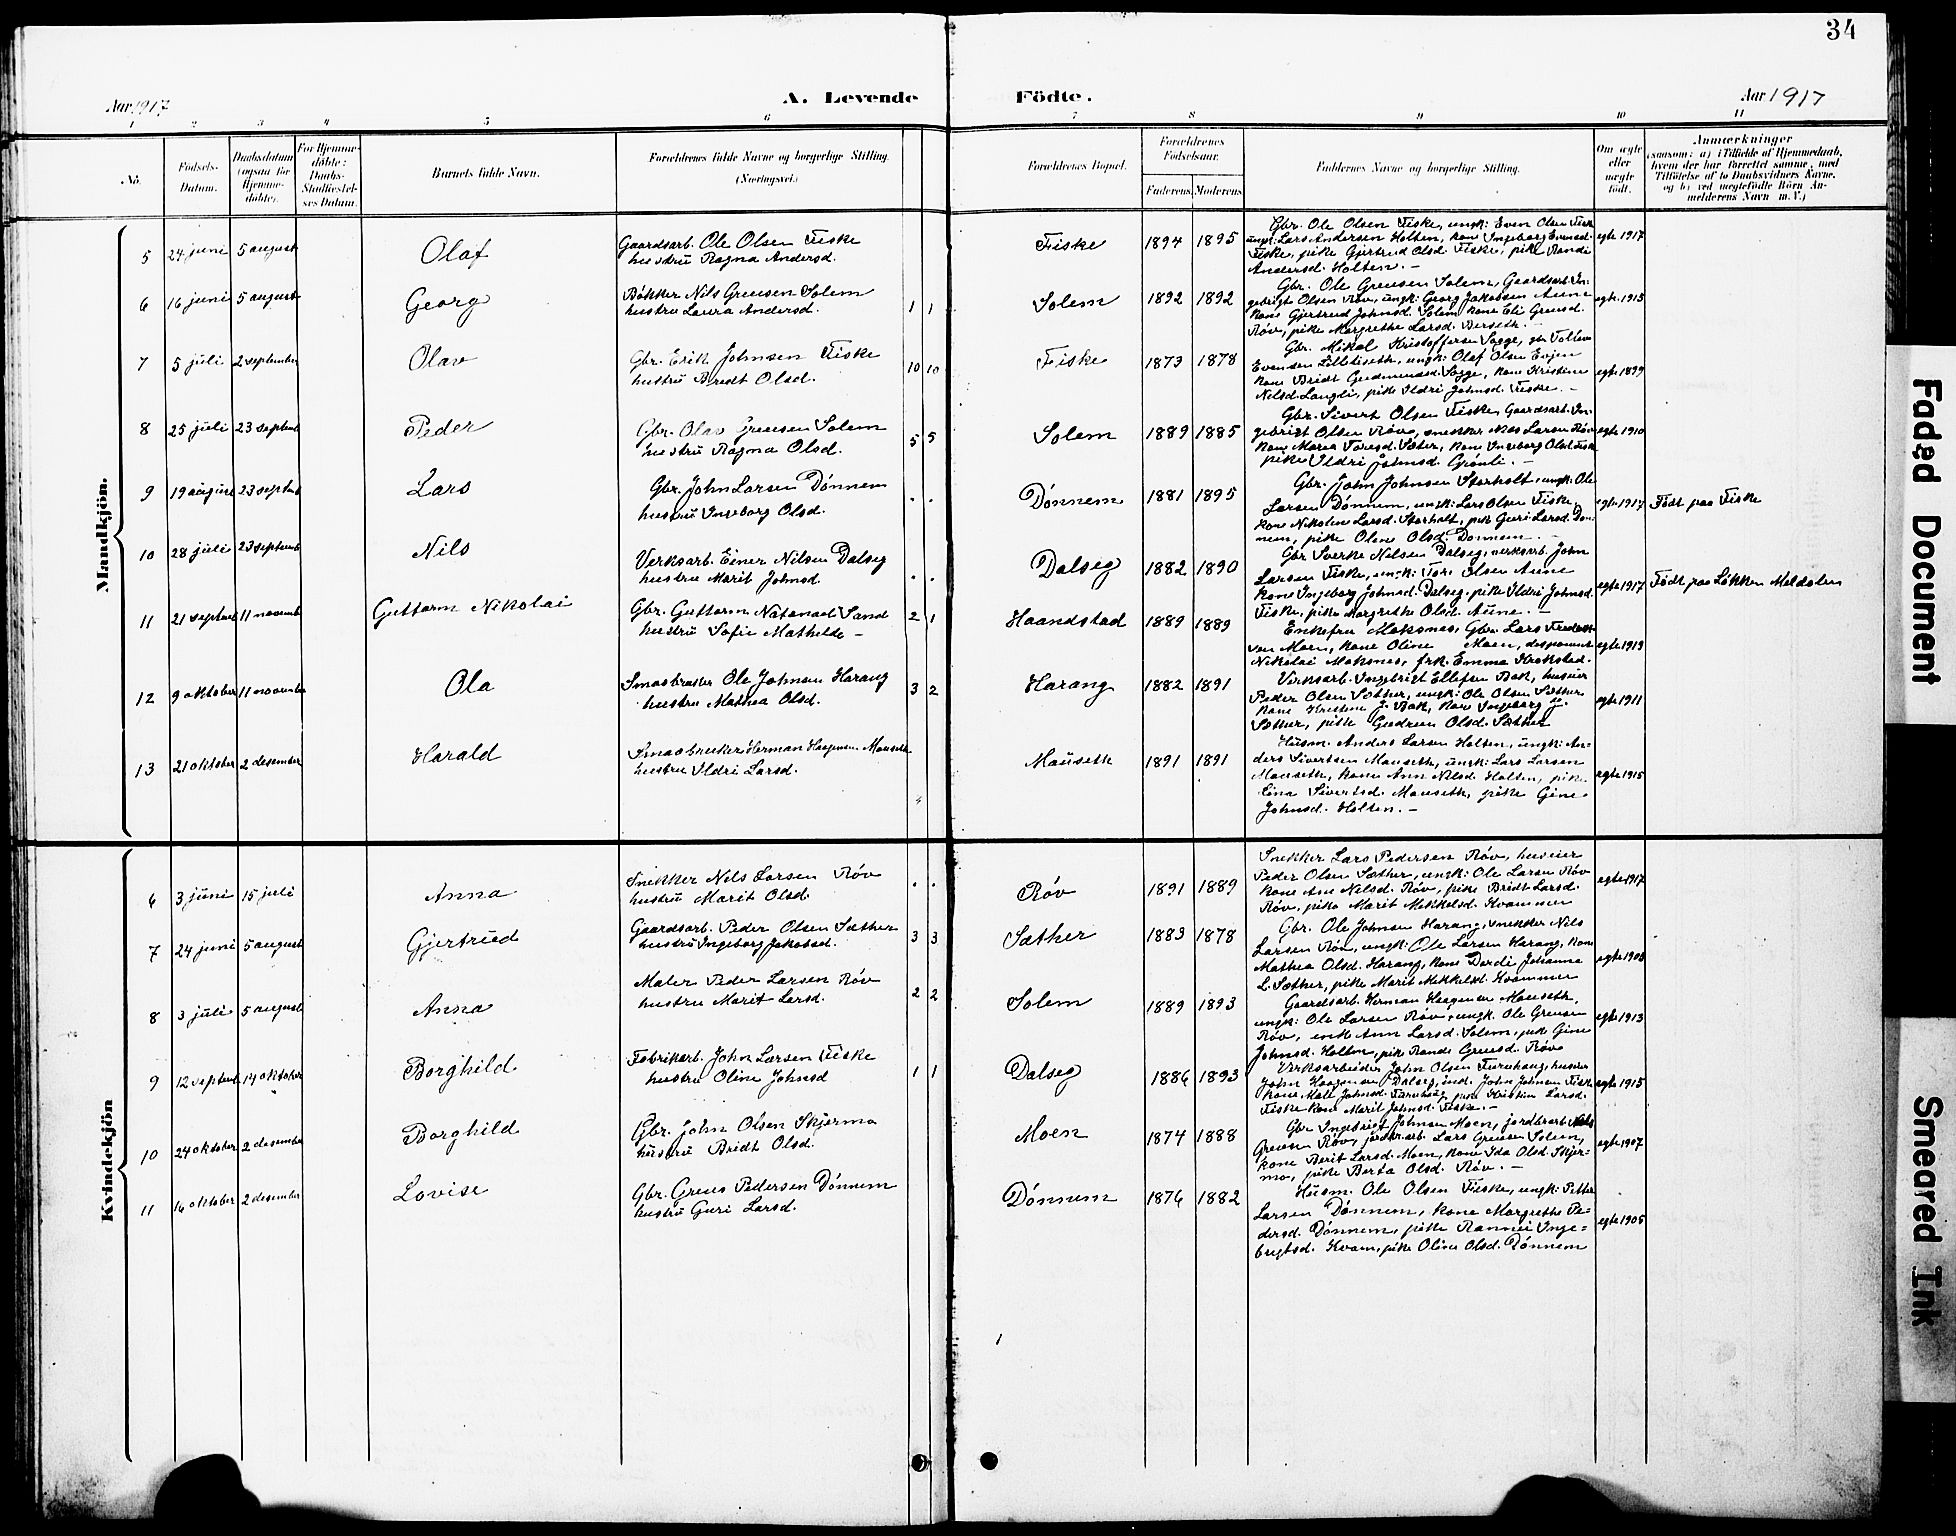 34
Aar 1917
A. Levende Födte.
Aar 1917
1 2 3 4 5 6 7 8 9 10 11
No.
Födsels-
Datum.
Daabsdatum
(ogsaa for
Hjemme-
döbte).
For Hjemme-
döbte:
Daabs-
Stadfæstel-
ses Datum.
Barnets fulde Navn.
Forældrenes fulde Navne og borgerlige Stilling.
(Næringsvei.)
Forældrenes Bopæl.
Forældrenes
Födselsaar.
Faderens. Moderens.
Faddernes Navne og borgerlige Stilling.
Om ægte
eller
uægte
födt.
Anmærkninger
(saasom: a) i Tilfælde af Hjemmedaab,
hvem der har forrettet samme, med
Tilföielse af to Daabsvidners Navne.
og b) ved uægtefödte Börn An-
melderens Navn m. V.)
Mandkjön.
5 24 juni 5 august Olaf
Gaardsarb. Ole Olsen Fiske
hustru Ragna Andersd.
Fiske 1894 1895
Gbr. Ole Olsen Fiske, ungk: Even Olsen Fiske
ungk: Lars Andersen Holten, kone Ingeborg Evensd.
Fiske, pike Gjertrud Olsd. Fiske, pike Randi
Andersd. Holten. –
egte 1917
6 16 juni 5 august Georg
Bökker Nils Greusen Solem
hustru Laura Andersd.
1 1
Solem 1892 1892
Gbr. Ole Greusen Solem, Gaardsarb. In-
gebrigt Olsen Röv, ungk: Georg Jakobsen Aune
kone Gjertrud Johnsd. Solem, kone Eli Greusd.
Röv, pike Margrethe Larsd. Berseth. –
egte 1913
7 5 juli 2 september Olav
Gbr. Erik Johnsen Fiske
hustru Bredt Olsd.
10 10
Fiske 1873 1878
Gbr. Mikal Kristoffersen Sogge, Tollev
Evensen Lilletiseth, ungk: Olaf Olsen Evjen
kone Bridt Gudmundsd. Sogge, kone Kristine
Nilsd. Langli, pike Ildri Johnsd. Fiske. –
egte 1899
8 25 juli 23 septemb Peder
Gbr. Olav Greusen Solem
hustru Ragna Olsd.
5 5
Solem 1889 1885
Gbr. Sivert Olsen Fiske, Gaardsarb. In-
gebrigt Olsen Röv, snekker Nils Larsen Röv
kone Marea Toresd. Sæter, kone Ingeborg Olsd. Fiske
pike Ildri Johnsd. Grönli. –
egte 1910
9 19 august 23 septemb Lars
Gbr. John Larsen Dönnem
hustru Ingeborg Olsd.
Dönnem 1881 1895
Gbr. John Johnsen Storholt, ungk: Ole
Larsen Dönnem, ungk: Lars Olsen Fiske,
kone Nikoline Larsd. Storholt, pike Guri Larsd. Dön-
nem, pike Oline Olsd. Dönnem. –
egte 1917
Födt paa Fiske
10 28 juli 23 septemb Nils
Verksarb. Einer Nilsen Dalseg
hustru Marit Johnsd.
Dalseg 1882 1890
Gbr. Sverke Nilsen Dalseg, verksarb. John
Larsen Fiske, ungk: Tore Olsen Aune
kone Ingeborg Johnsd. Dalseg, pike Ildri Johnsd.
Fiske, pike Margrethe Olsd. Aune. –
egte 1917
Födt paa Lökken Meldalen
11 21 septemb 11 novemb Guttorm Nikolai
Gbr. Guttorm Natanael Sand
hustru Sofie Mathilde –
2 1
Haandstad 1889 1889
Enkefru Moksnes, Gbr. Lars Fredrik-
sen Moen, kone Oline Moen, desponent
Nikolai Moksnes, frk. Emma Krokstad.
egte 1913
12 9 oktober 11 november Ola
Smaabruker Ole Johnsen Harang
hustru Mathea Olsd.
3 2
Harang 1882 1891
Verksarb. Ingebrigt Ellefsen Bak, huseier
Peder Olsen Sæther, ungk: Ole Olsen Sæther
kone Kristine J. Bak, kone Ingeborg J.
Sæther, pike Gudrun Olsd. Sæther
egte 1911
13 21 oktober 2 desember Harald
Smaabruker Herman Haagensen Mauseth
hustru Ildri Larsd.
Mauseth 1891 1891
Husm. Anders Larsen Holten, ungk: An-
ders Sivertsen Mauseth, ungk: Lars Larsen
Mauseth, kone Ann Nilsd. Holten, pike
Eina Sivertsd. Mauseth, pike Gine
Johnsd. Holten. –
egte 1915
Kvindekjön
6 3 juni 15 juli Anna
Snekker Nils Larsen Röv
hustru Marit Olsd.
Röv 1891 1889
Snekker Lars Pedersen Röv, huseier
Peder Olsen Sæther, ungk: Ole Larsen Röv
kone Ane Nilsd. Röv, pike Bridt Larsd.
Röv, pike Marit Mekkelsd. Kvammen
egte 1917
7 24 juni 5 august Gjertrud
Gaardsarb. Peder Olsen Sæther
hustru Ingeborg Jakobsd.
3 3
Sæther 1883 1878
Gbr. Ole Johnsen Harang, snekker Nils
Larsen Röv, ungk: Ole Larsen Harang, kone
Mathea Olsd. Harang, kone Dordi Johanne
L. Sæther, pike Marit Mekkelsd. Kvammen
egte 1908
8 3 juli 5 august Anna
Maler Peder Larsen Röv
hustru Marit Larsd.
2 2
Solem 1889 1893
Gaardsarb. Herman Haagensen Mauseth,
ungk: Ole Larsen Röv, ungk. Ole Greusen
Röv, enk. Ann Larsd. Solem, pike Gine
Johnsd. Holten, pike Randi Greusd. Röv
egte 1913
9 12 septemb 14 oktober Borghild
Fabrikarb. John Larsen Fiske
hustru Oline Johnsd
1 1
Dalseg 1886 1893
Verksarbeider John Olsen Furuhaug, huseier
John Haagensen Dalseg, ind. John Johnsen Fiske
kone Mali Johnsd. Furuhaug, pike Kristine Larsd.
Fiske, kone Marit Johnsd. Fiske. –
egte 1915
10 24 oktober 2 desember Borghild
Gbr. John Olsen Skjermo
hustru Bridt Olsd.
Moen 1874 1888
Gbr. Ingebrigt Johnsen Moen, jordbrarb. Nils
Greusen Röv, jordbr.arb. Lars Greusen Solem,
kone Berit Larsd. Moen, kone Ida Olsd. Skjer-
mo, pike Berta Olsd. Röv. –
egte 1907
11 16 oktober 2 desember Lovise
Gbr. Greus Pedersen Dönnem
hustru Guri Larsd.
Dönnem 1876 1882
Husm. Ole Olsen Fiske, ungk: Petter
Larsen Dönnem, kone Margrethe Pe-
dersd. Dönnem, pike Rannei Inge-
brigtsd. Kvam, pike Oline Olsd. Dönnem
egte 1905
Faded Document
Smeared Ink